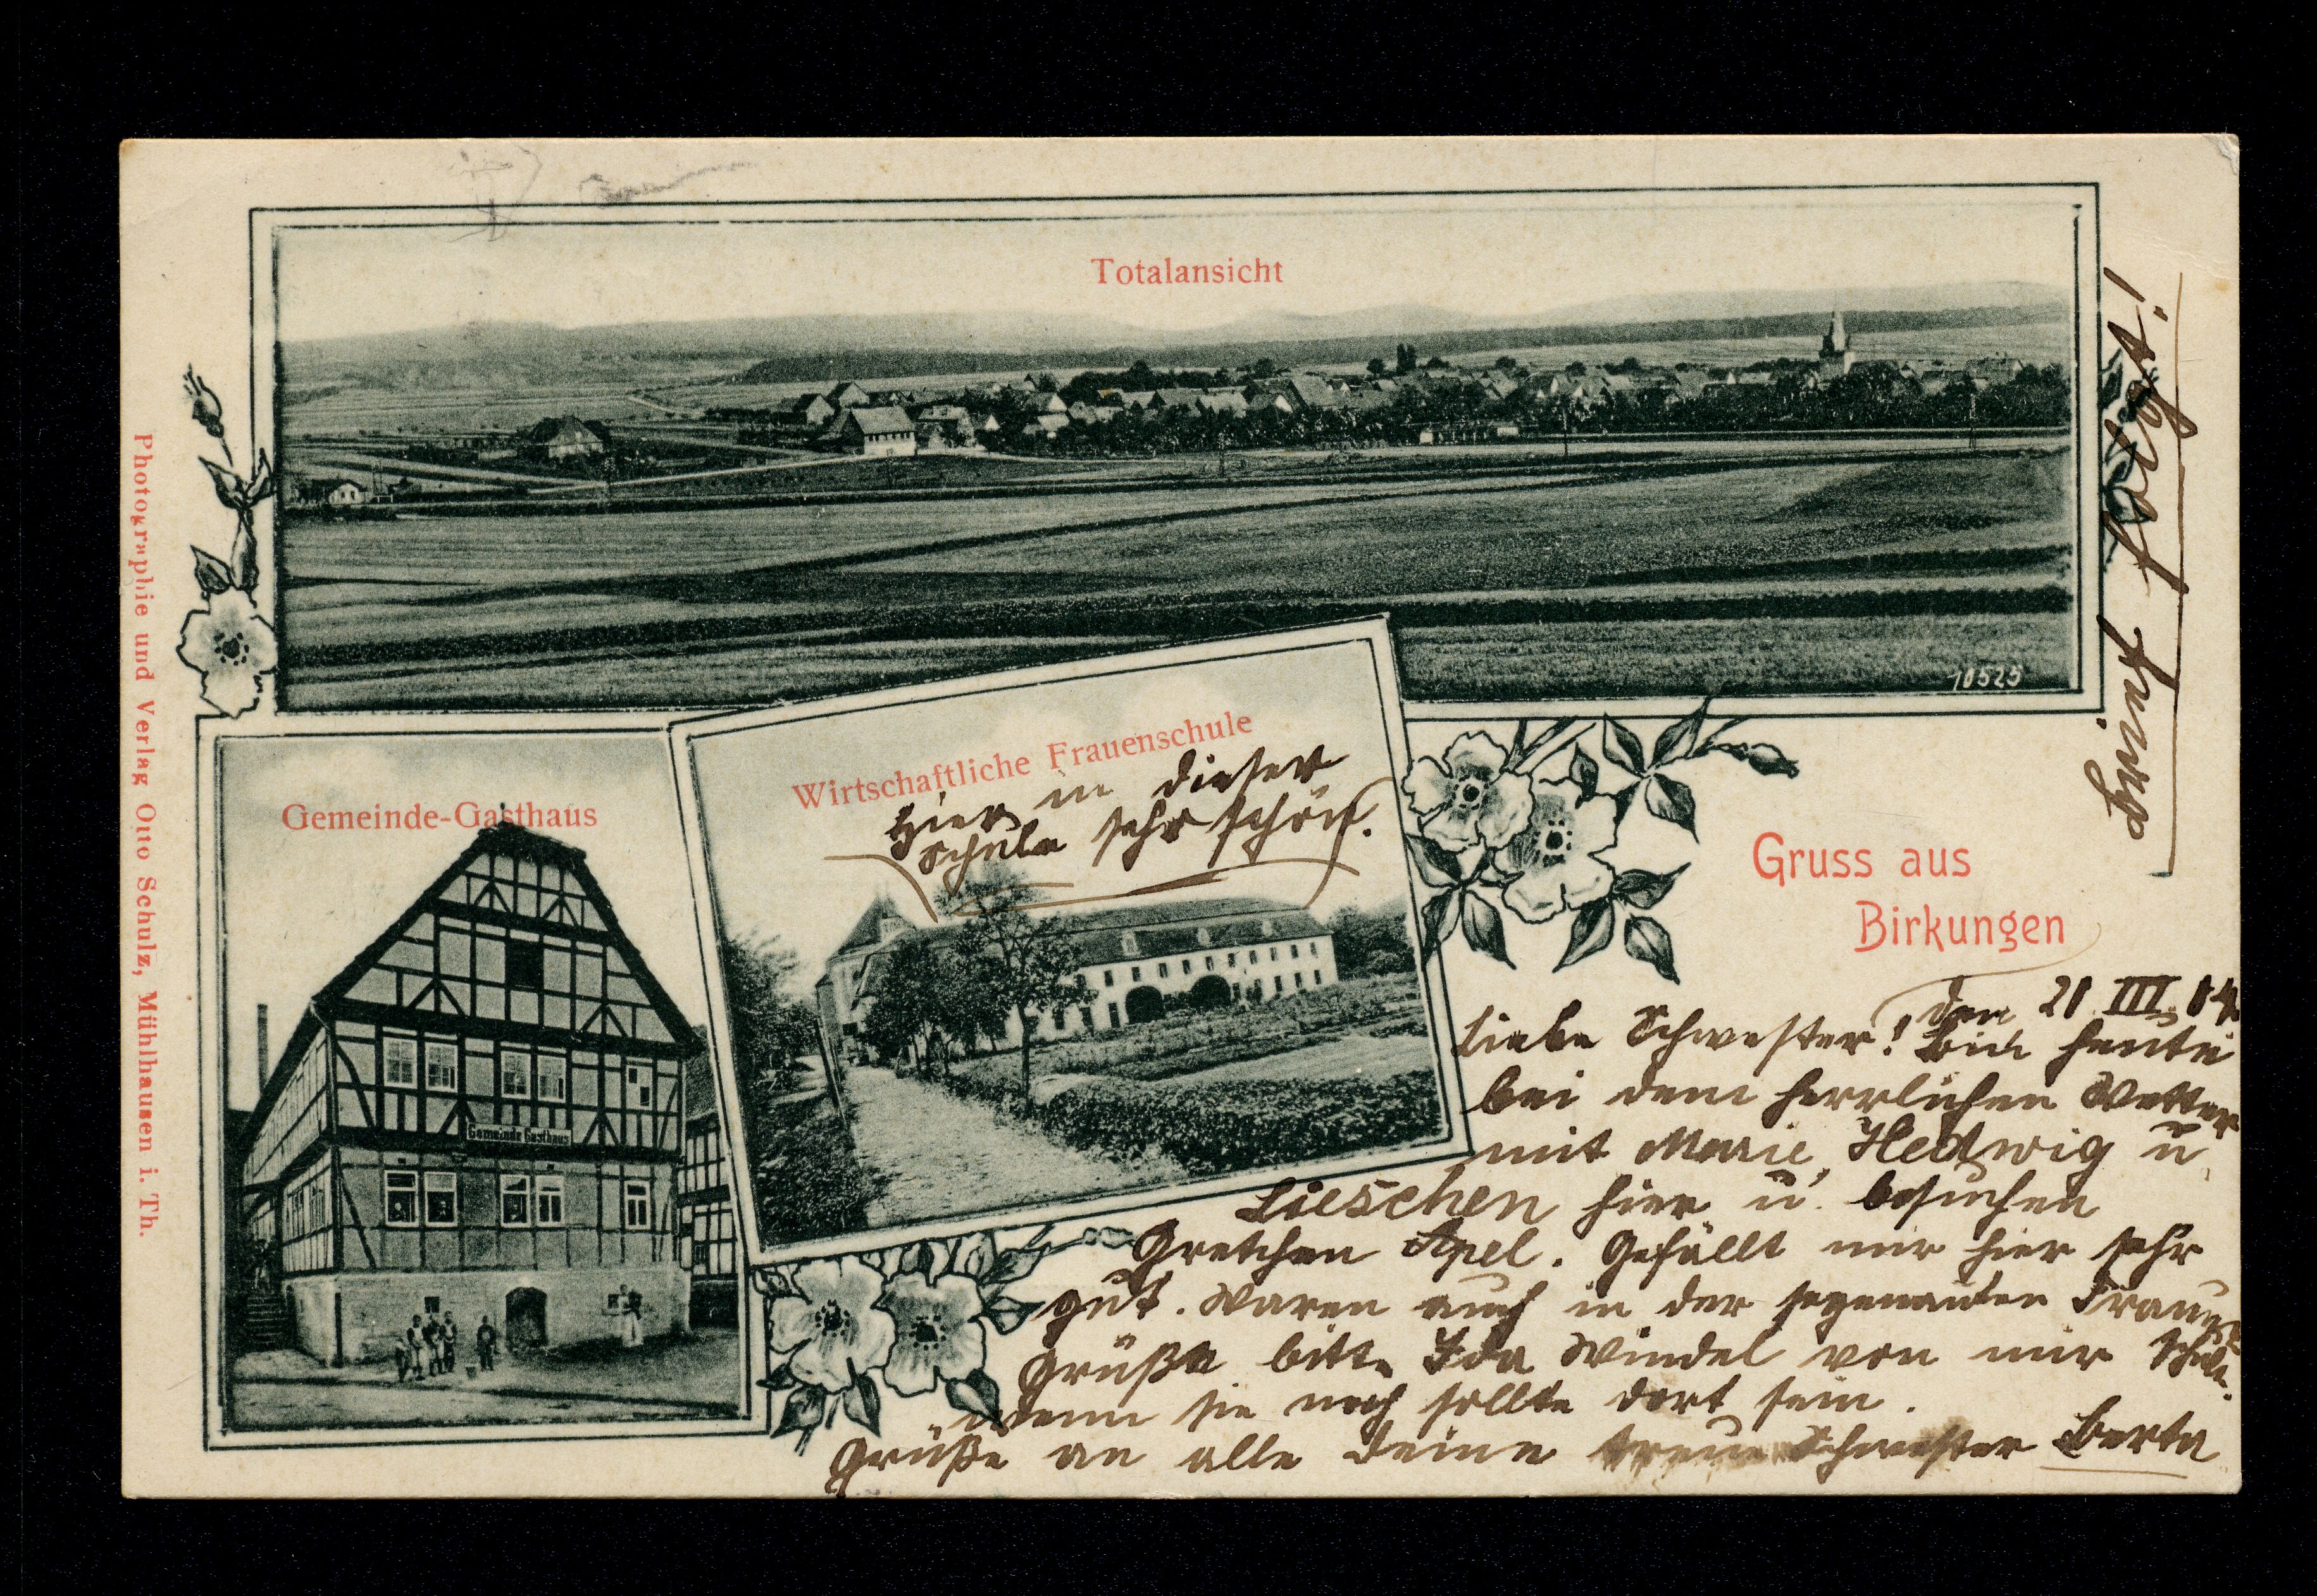 Totalansicht
10525
Brief folgt!
Photographie und Verlag Otto Schulz, Mühlhausen i. Th.
Gemeinde-Gasthaus
Gemeinde Gasthaus
Wirtschaftliche Frauenschule
Hier in dieser
Schule sehr schön.
Gruss aus
Birkungen
den 21. III. 04.
Liebe Schwester! Bin heute
bei dem herrlichen Wetter
mit Marie, Hedwig u.
Lieschen hier u. besuchen
Gretchen Apel. Gefällt mir hier sehr
gut. Waren auch in der sogenanten Frauen
Schule.
Grüße bitte Ida Windel von mir
wenn sie noch sollte dort sein.
Grüße an alle deine treue Schwester Berta